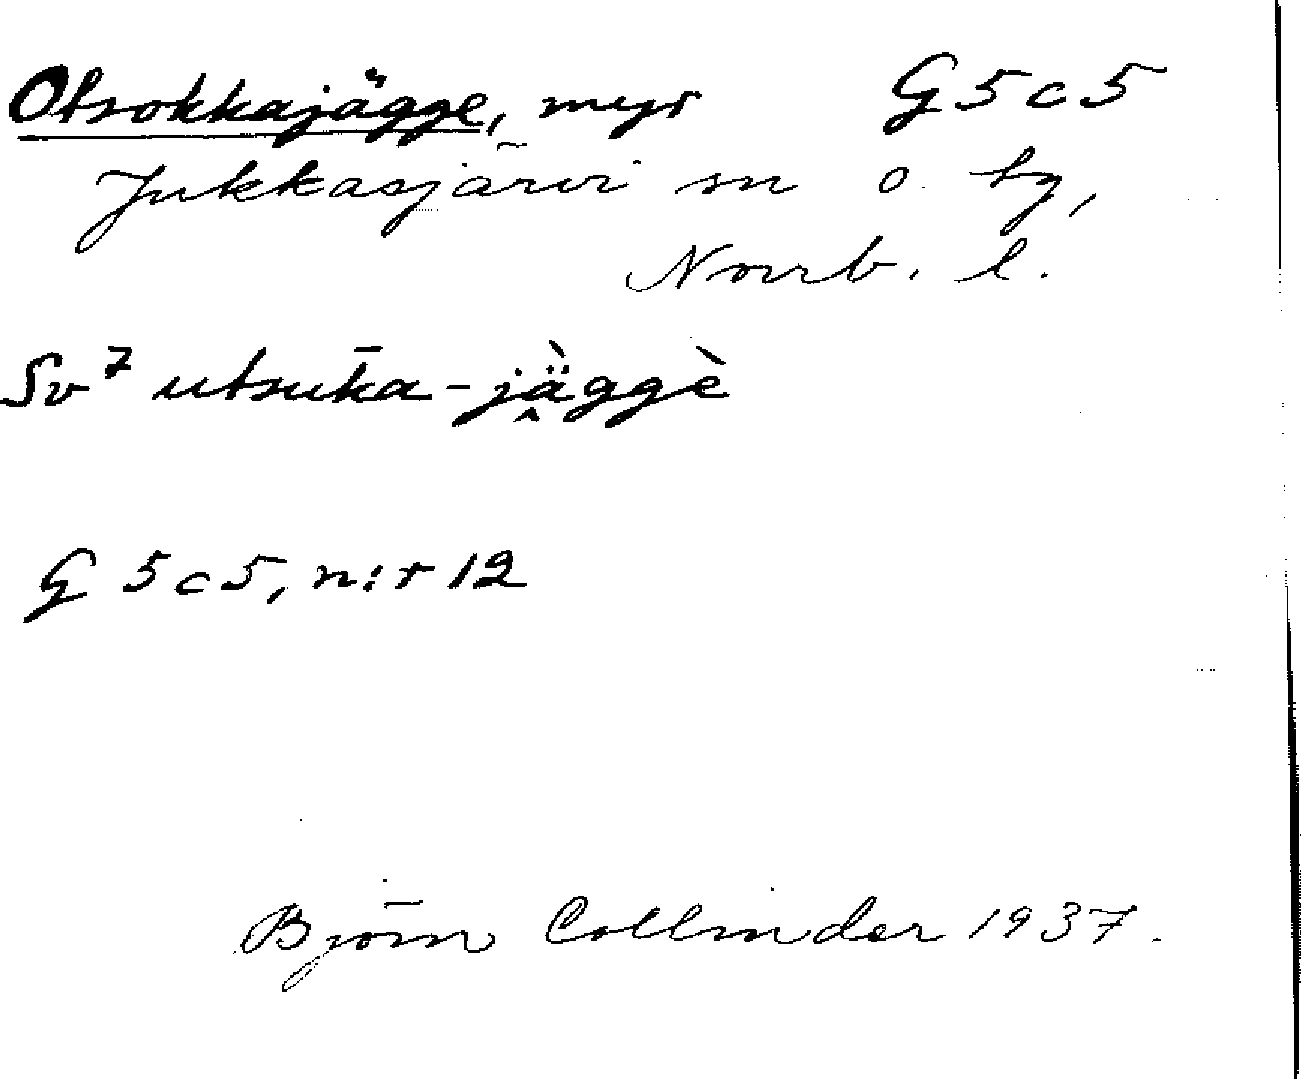 Otsokkajägge, myr G 5 c 5
Jukkasjärvi sn o. tg,
Norrb. l.
Sv 7 utsuk̄a-jä̭̀ggè
G 5 c 5, n:r 12
Björn Collinder 1937.